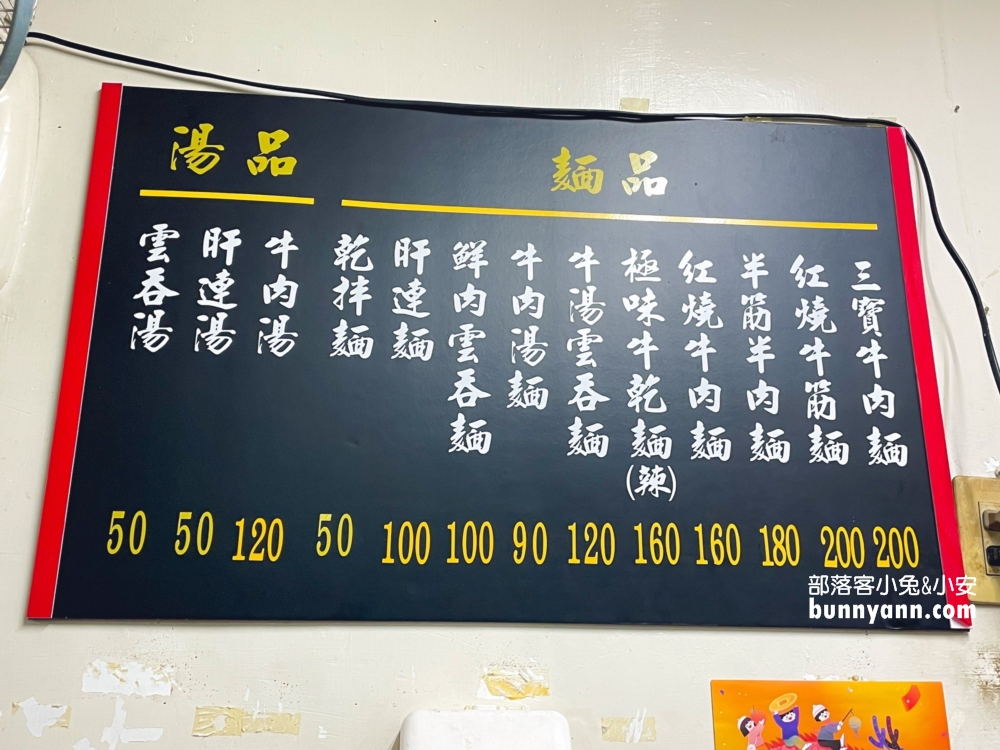 麵品
三寶牛肉麵
200
紅燒牛筋麵
200
半筋半肉麵
180
紅燒牛肉麵
160
極味牛乾麵(辣)
160
牛湯雲吞麵
120
牛肉湯麵
90
鮮肉雲吞麵
100
肝連麵
100
乾拌麵
50
湯品
牛肉湯
120
肝連湯
50
雲吞湯
50
部落客小兔&小安
bunnyann.com